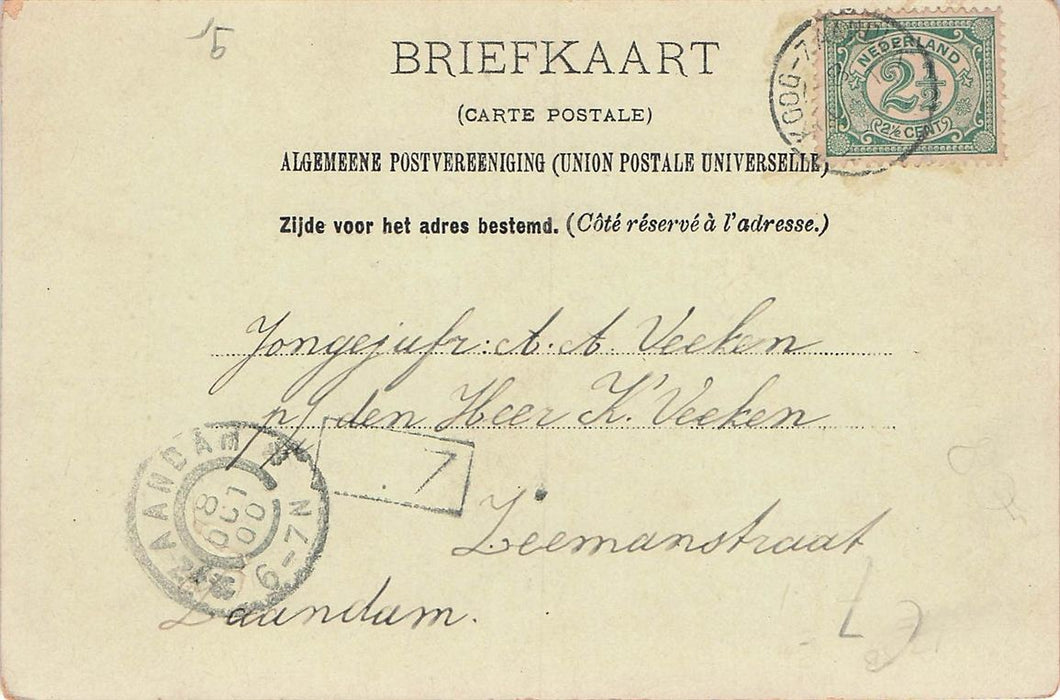 BRIEFKAART
(CARTE POSTALE)
ALGEMEENE POSTVEREENIGING (UNION POSTALE UNIVERSELLE)
Zijde voor het adres bestemd. (Côté réservé à l'adresse.)
NEDERLAND
2½
2½ CENT
KOOG-ZAAND
Jongejufr: A. A. Veeken
p/ den Heer K. Veeken
7
Zeemanstraat
Zaandam.
ZAANDAM
8 OCT 00
6-7N
7